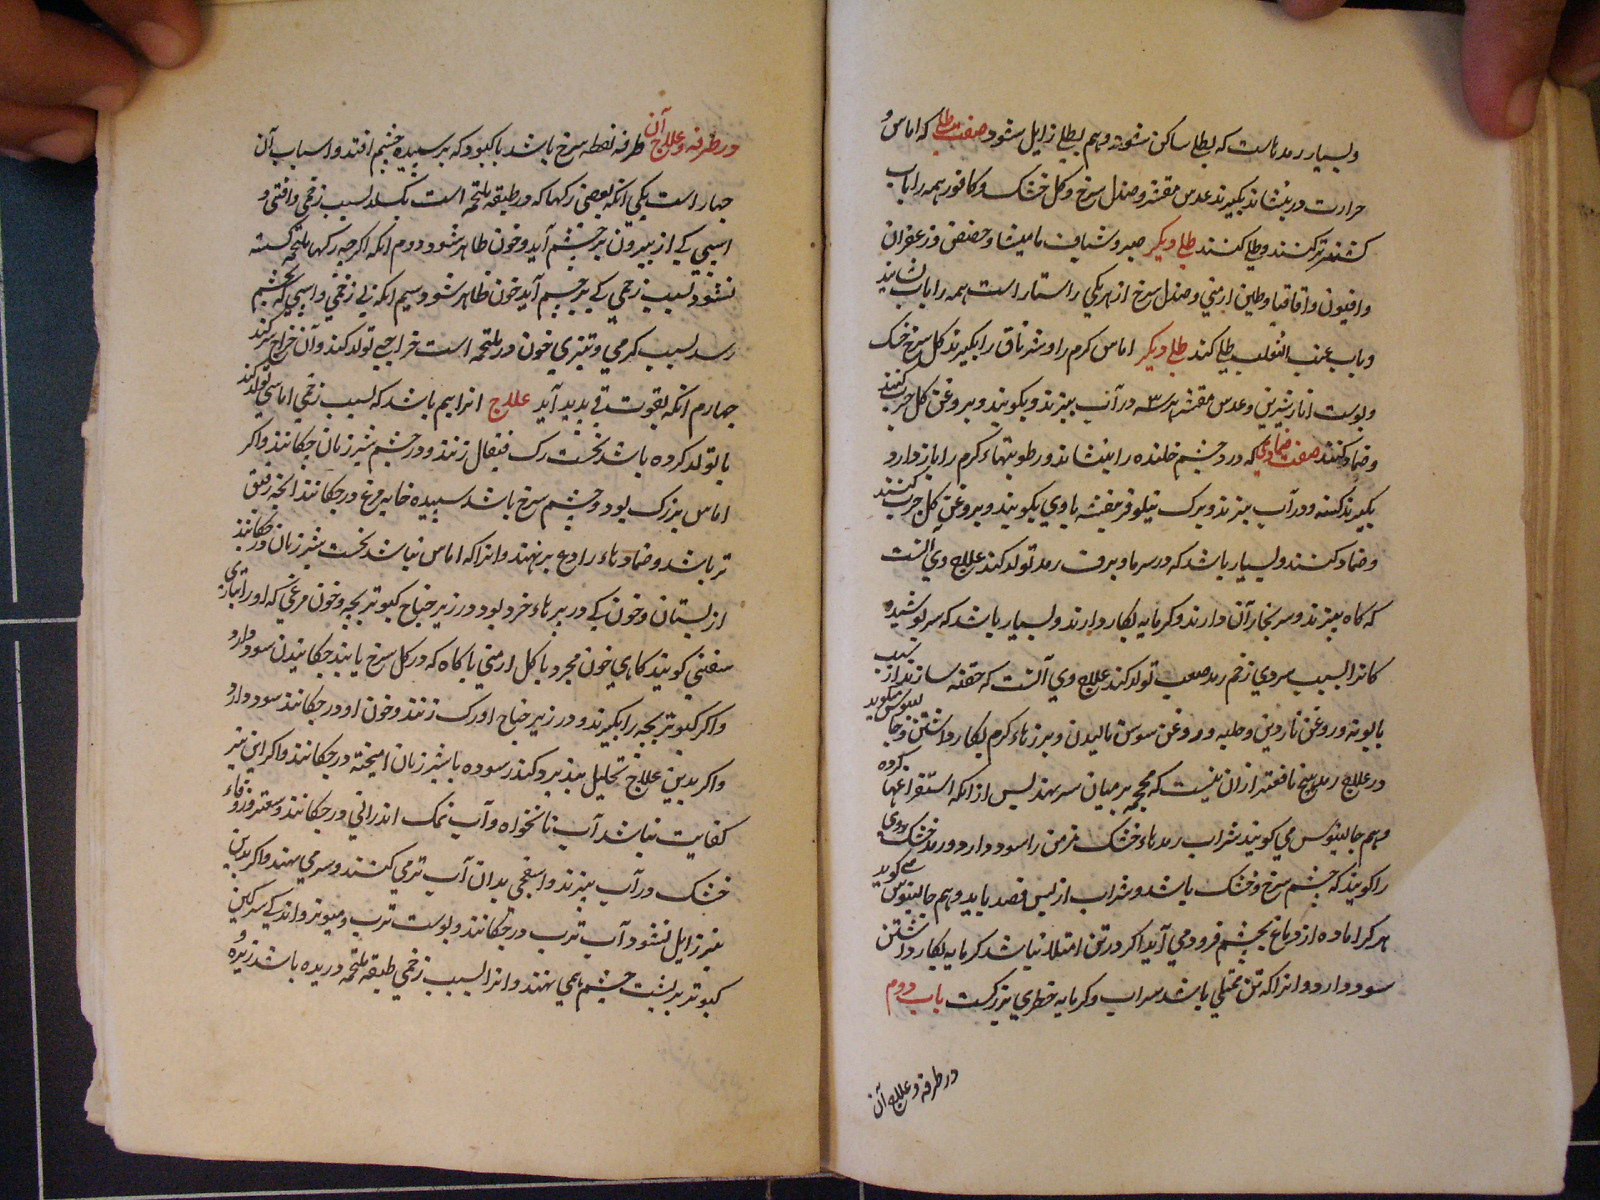 و بسیار رمد باست که بطلی ساکن شود و هم بطلی زایل شود صفت طلی که اماس و
حرارت در بنشاند بکیرند عدس مقشر و صندل سرخ و کل خشک و کافور همه را باب
کشنیز تر کنند و طلی کنند طلی دیکر صبر و شیاف مامیثا و حضض و زعفران
و افیون و اقاقیا و طین ارمنی و صندل سرخ از هریکی راستا راست همه را باب
و باب عنب الثعلب طلی کند طلی دیکر اماس کرم را و شرناق را بکیرند کل سرخ خشک
و پوست انار شیرین و عدس مقشر هر سه در آب بپزند و بکوبند و بروغن کل چرب کنند
و ضماد کنند صفت ضمادی که درد چشم خلنده را بنشاند و رطوبتهاء کرم را باز دارد
بکیرند و در آب بپزند و برک نیلوفر بنفشه با وی بکوبند و بروغن کل چرب کنند
و ضماد کنند و بسیار باشد که در سرما و برف رمد تولد کند علاج وی آنست
که کاه بپزند و سر بخار آن دارند و کرمابه بکار دارند و بسیار باشد که سر پوشیده
کانرا بسبب سردی زخم رمد صعب تولد کند علاج وی آنست که حقنه سازند از
بابونه و روغن ناردین و حلبه و روغن سوسن مالیدن و برزهاء کرم بکار داشتن و جالینوس میکوید
در علاج رمد هیچ نافعتر ازان نیست که محجمه بر میان سر نهند پس از انکه استفراغها کرده
و هم جالینوس می کویند شراب رمدهاء خشک مزمن را سود دارد و رمد خشک
را کویند که چشم سرخ و خشک باشد و شراب از پس فصد باید و هم جالینوس می کوید
هر کرا ماده از دماغ بچشم فرود می آید اکر در تن امتلا نباشد کرمابه بکار داشتن
سود دارد و انرا که تن ممتلی باشد شراب و کرمابه خطری بزرکست باب دوم
در طرفه و علاج آن
در طرفه و علاج آن طرفه نقطه سرخ باشد یا کبود که بر سپیده چشم افتد و اسباب آن
چهار است یکی انکه بعضی رکها که در طبقه ملتحمه است بکسلد بسبب زخمی و افتی و
اسیبی کی از بیرون بر چشم آید و خون ظاهر شود و دوم انکه اکرچه رکها ملتحمه کسسته
نشود بسبب زخمی کی بر چشم آید خون ظاهر شود سیم انکه بی زخمی و اسیبی که بچشم
رسد بسبب کرمی و تیزی خون در ملتحمه است خراجی تولد کند و آن خراج سر کند
چهارم انکه بقوت قی پدید آید علاج انرا هم باشد که بسبب زخمی اماسی تولد کند
یا تولد کرده باشد نخست رک قیفال زنند و در چشم شیر زنان چکانند و اکر
اماس بزرک بود و چشم سرخ باشد سپیده خایه مرغ در چکانند انچه رقیق
تر باشد و ضمادهاء رادع بر نهند و انرا که اماس نباشد نخست شیر زنان در چکانند
از پستان و خون کی در پرهاء خرد بود در زیر جناح کبوتر بچه و خون مرغی که او را بتازی
شفنین کویند کاهی خون مجرد با کل ارمنی یا کاه که در کل سرخ یابند چکانیدن سود دارد
و اکر کبوتر بچه را بکیرند و در زیر جناح او رک زنند و خون او در چکانند سود دارد
و اکر بدین علاج تحلیل نپذیرد کندر سوده با شیر زنان امیخته در چکانند و اکر این نیز
کفایت نباشد آب نانخواه و آب نمک اندرانی در چکانند و سعتر و زوفاء
خشک در آب بپزند و اسفنجی بدان آب تر می کنند و بر می نهند و اکر بدین
نیز زایل نشود آب ترب در چکانند و پوست ترب و مویز و اندکی سرکین
کبوتر بر پشت چشم همی نهند و انرا بسبب زخمی طبقه ملتحمه دریده باشد زیره و